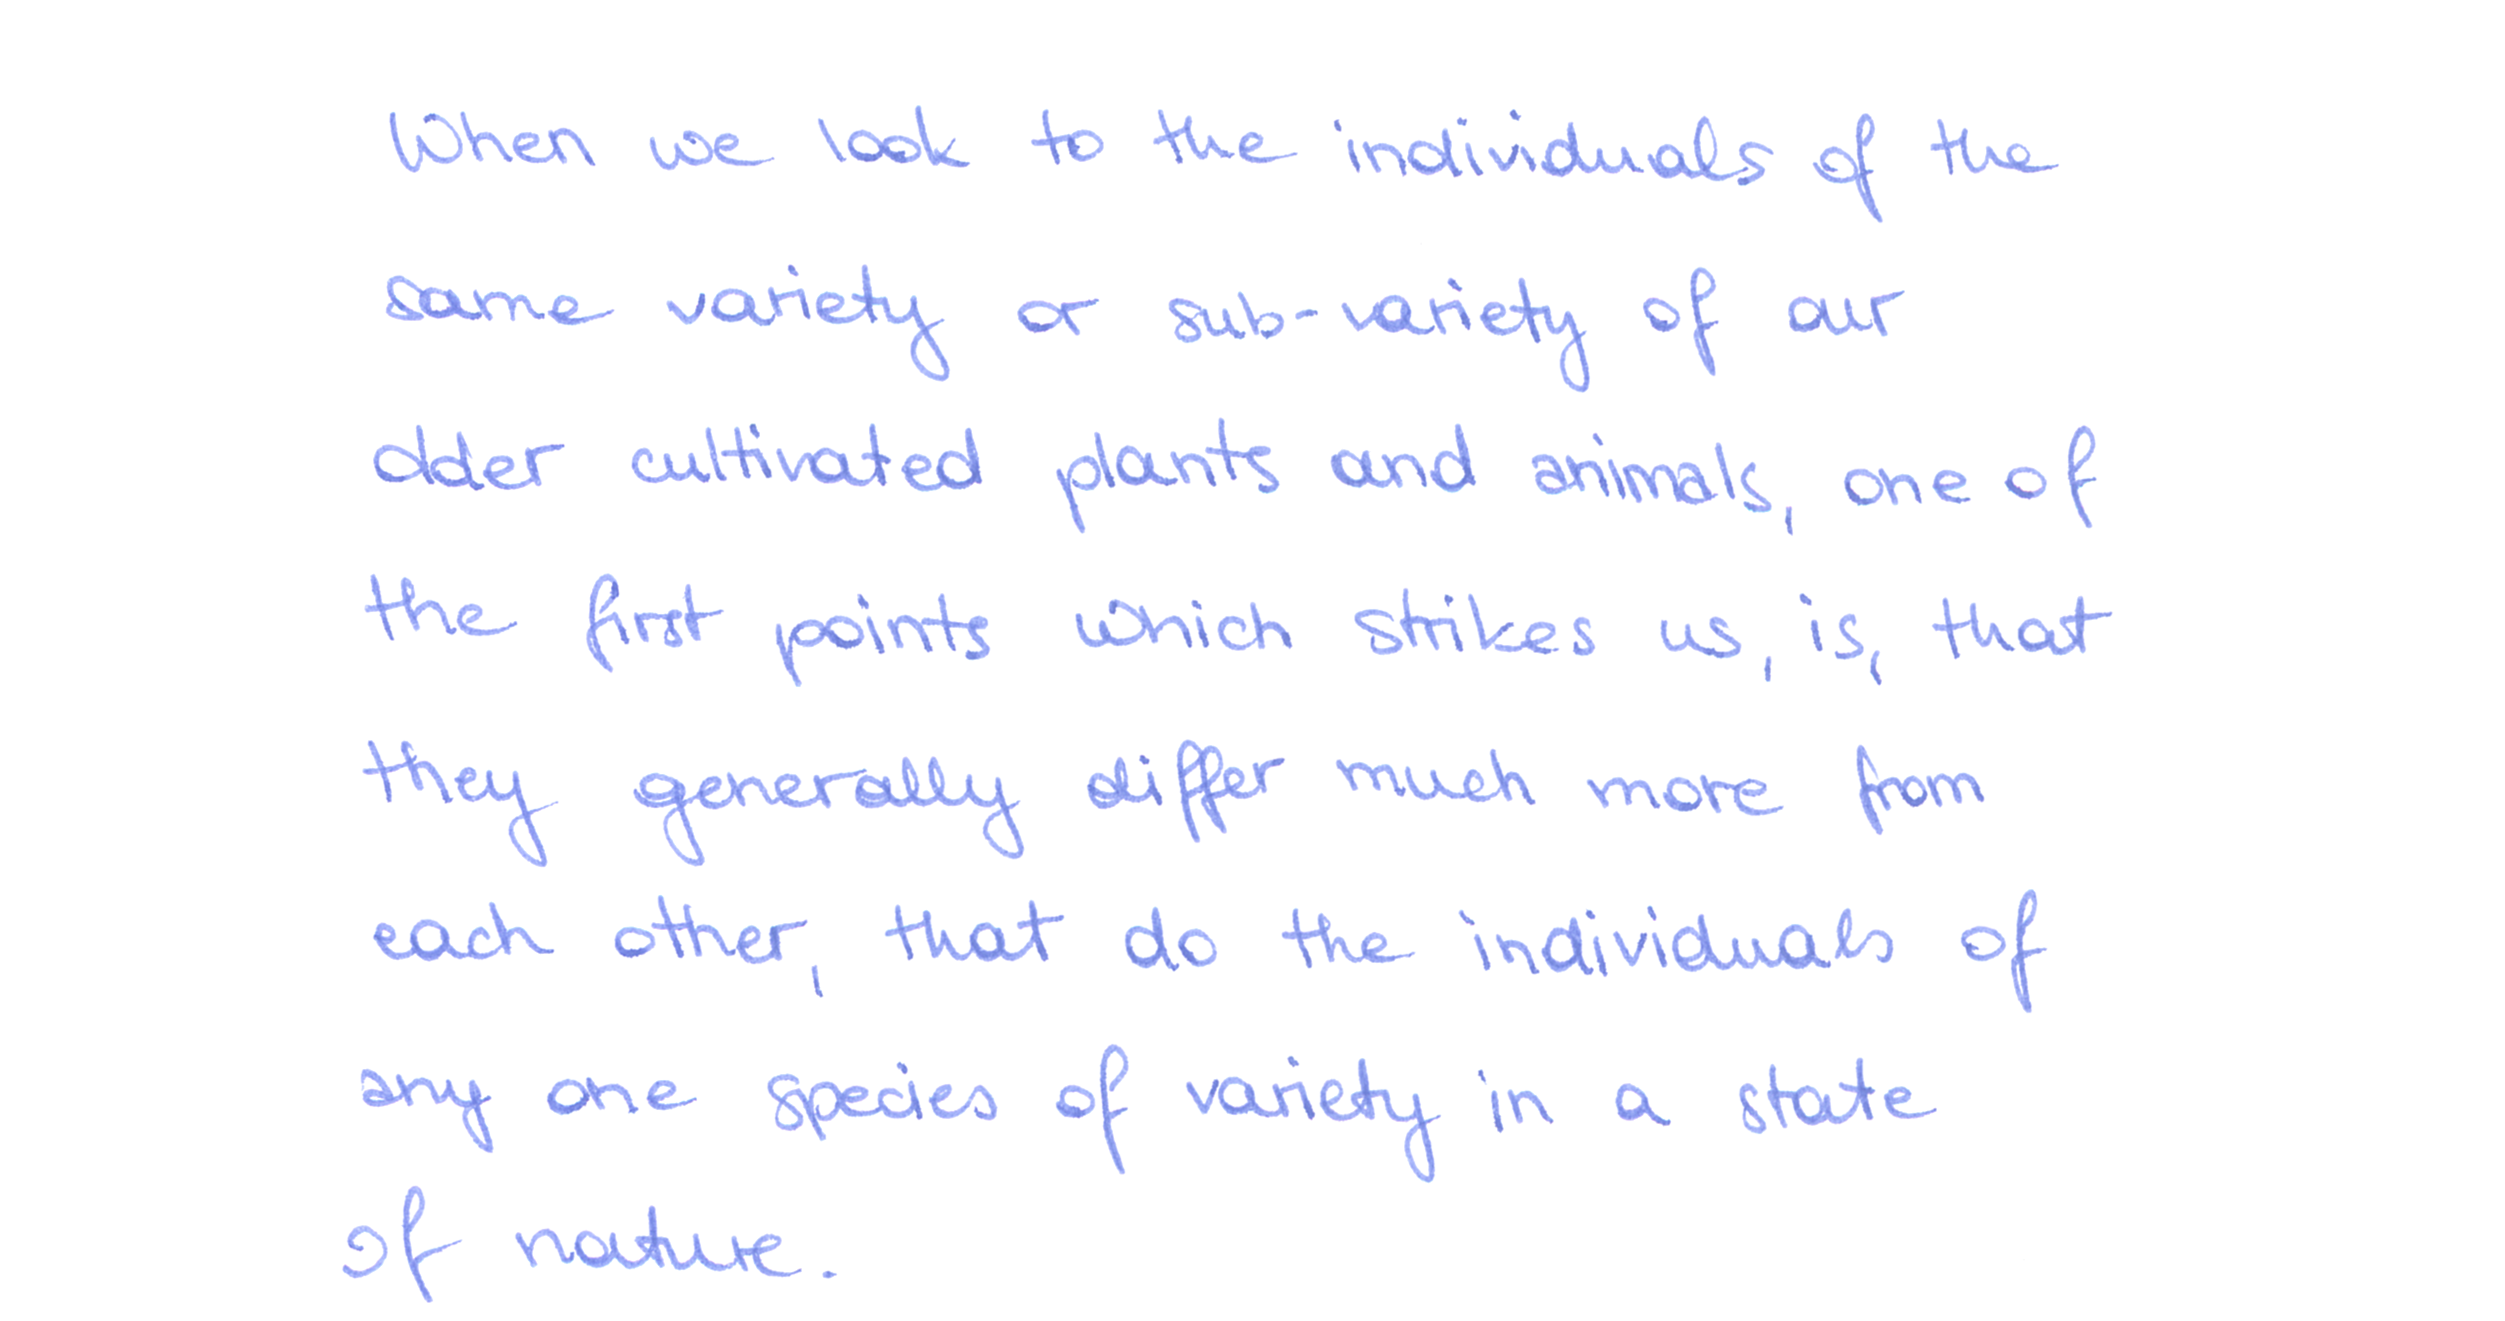 When we look to the individuals of the
same variety or sub-variety of our
older cultivated plants and animals, one of
the first points which strikes us, is, that
they generally differ much more from
each other, that do the individuals of
any one species of variety in a state
of nature.